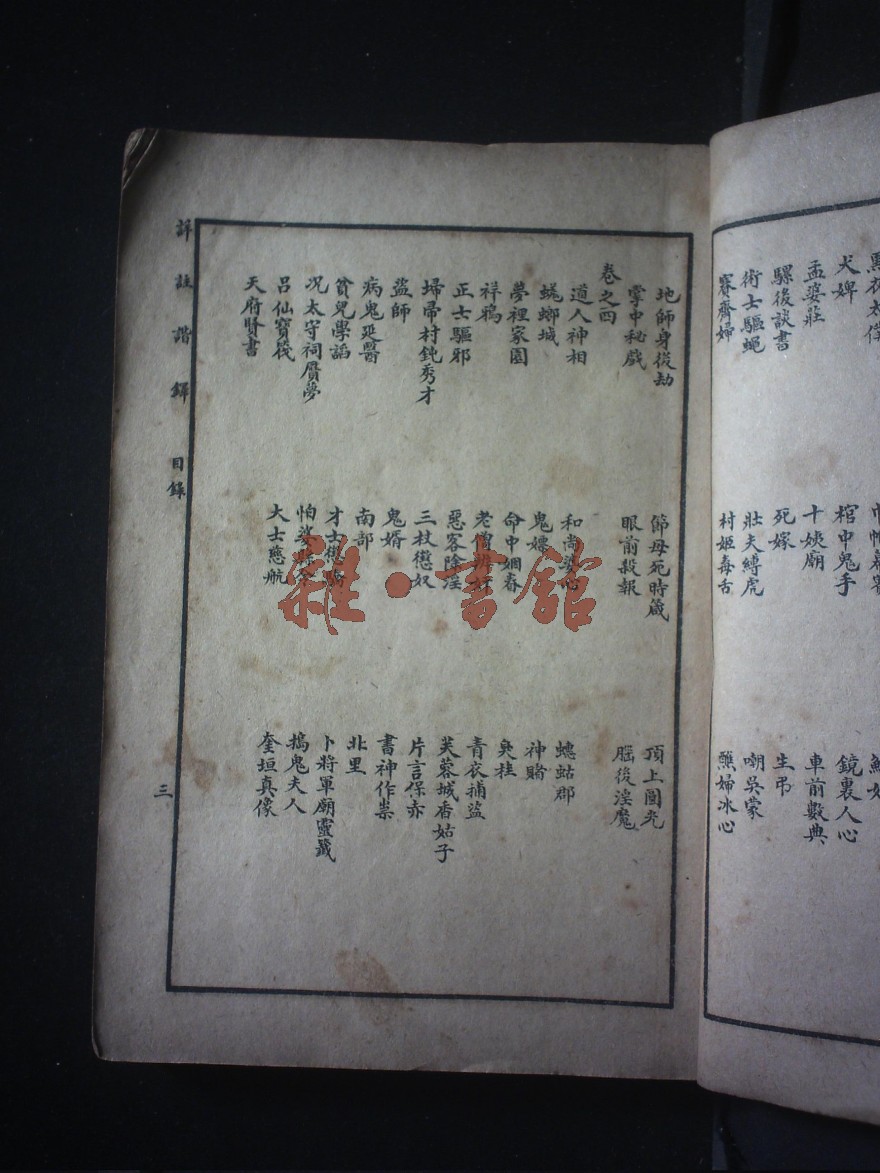 犬婢 棺中鬼手 鏡裏人心
孟婆莊 十姨廟 車前數典
騾後談書 死嫁 生弔
術士驅蠅 壯夫縛虎 嘲吳蒙
賽齊婦 村姬毒舌 醮婦冰心
地師身後劫 節母死時箴 頂上圓光
掌中秘戲 眼前殺報 腦後淫魔
卷之四
道人神相 和尚婆心 蟪蛄郡
蜣螂城 鬼嫖 神賭
夢裡家園 命中姻眷 臭桂
祥鴉 老僧辨奸 青衣捕盜
正士驅邪 惡客除淫 芙蓉城香姑子
埽帚村鈍秀才 三杖懲奴 片言保赤
盜師 鬼婿 書神作祟
病鬼延醫 南部 北里
貧兒學諂 才士懲驕 卜將軍廟靈籤
况太守祠贋夢 怕婆縣令 搗鬼夫人
呂仙寶筏 大士慈航 奎垣真像
天府賢書
詳註諧鐸 目錄 三
雜·書館